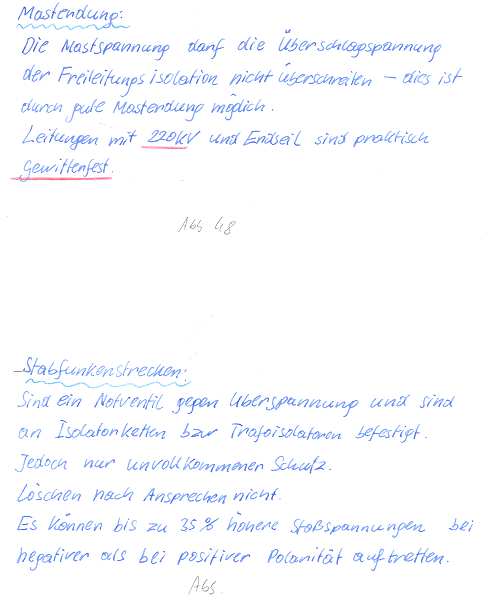 Masterdung:
Die Mastspannung darf die Überschlagspannung
der Freileitungsisolation nicht überschreiten – dies ist
durch gute Masterdung möglich.
Leitungen mit 220kV und Erdseil sind praktisch
Gewitterfest.
Abb 48
Stabfunkenstrecken:
Sind ein Notventil gegen Überspannung und sind
an Isolatorketten bzw Trafoisolatoren befestigt.
Jedoch nur unvollkommener Schutz.
Löschen nach Ansprechen nicht.
Es können bis zu 35% höhere Stoßspannungen bei
negativer als bei positiver Polarität auftretten.
Abb.